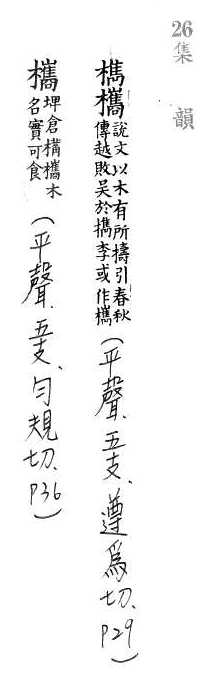 26 集 韻
檇欈 說文以木有所擣引春秋
傳越敗吳於檇李或作欈
(平聲、五支、遵為切、P29)
欈 埤倉構欈木
名實可食
(平聲、五支、匀規切、P36)